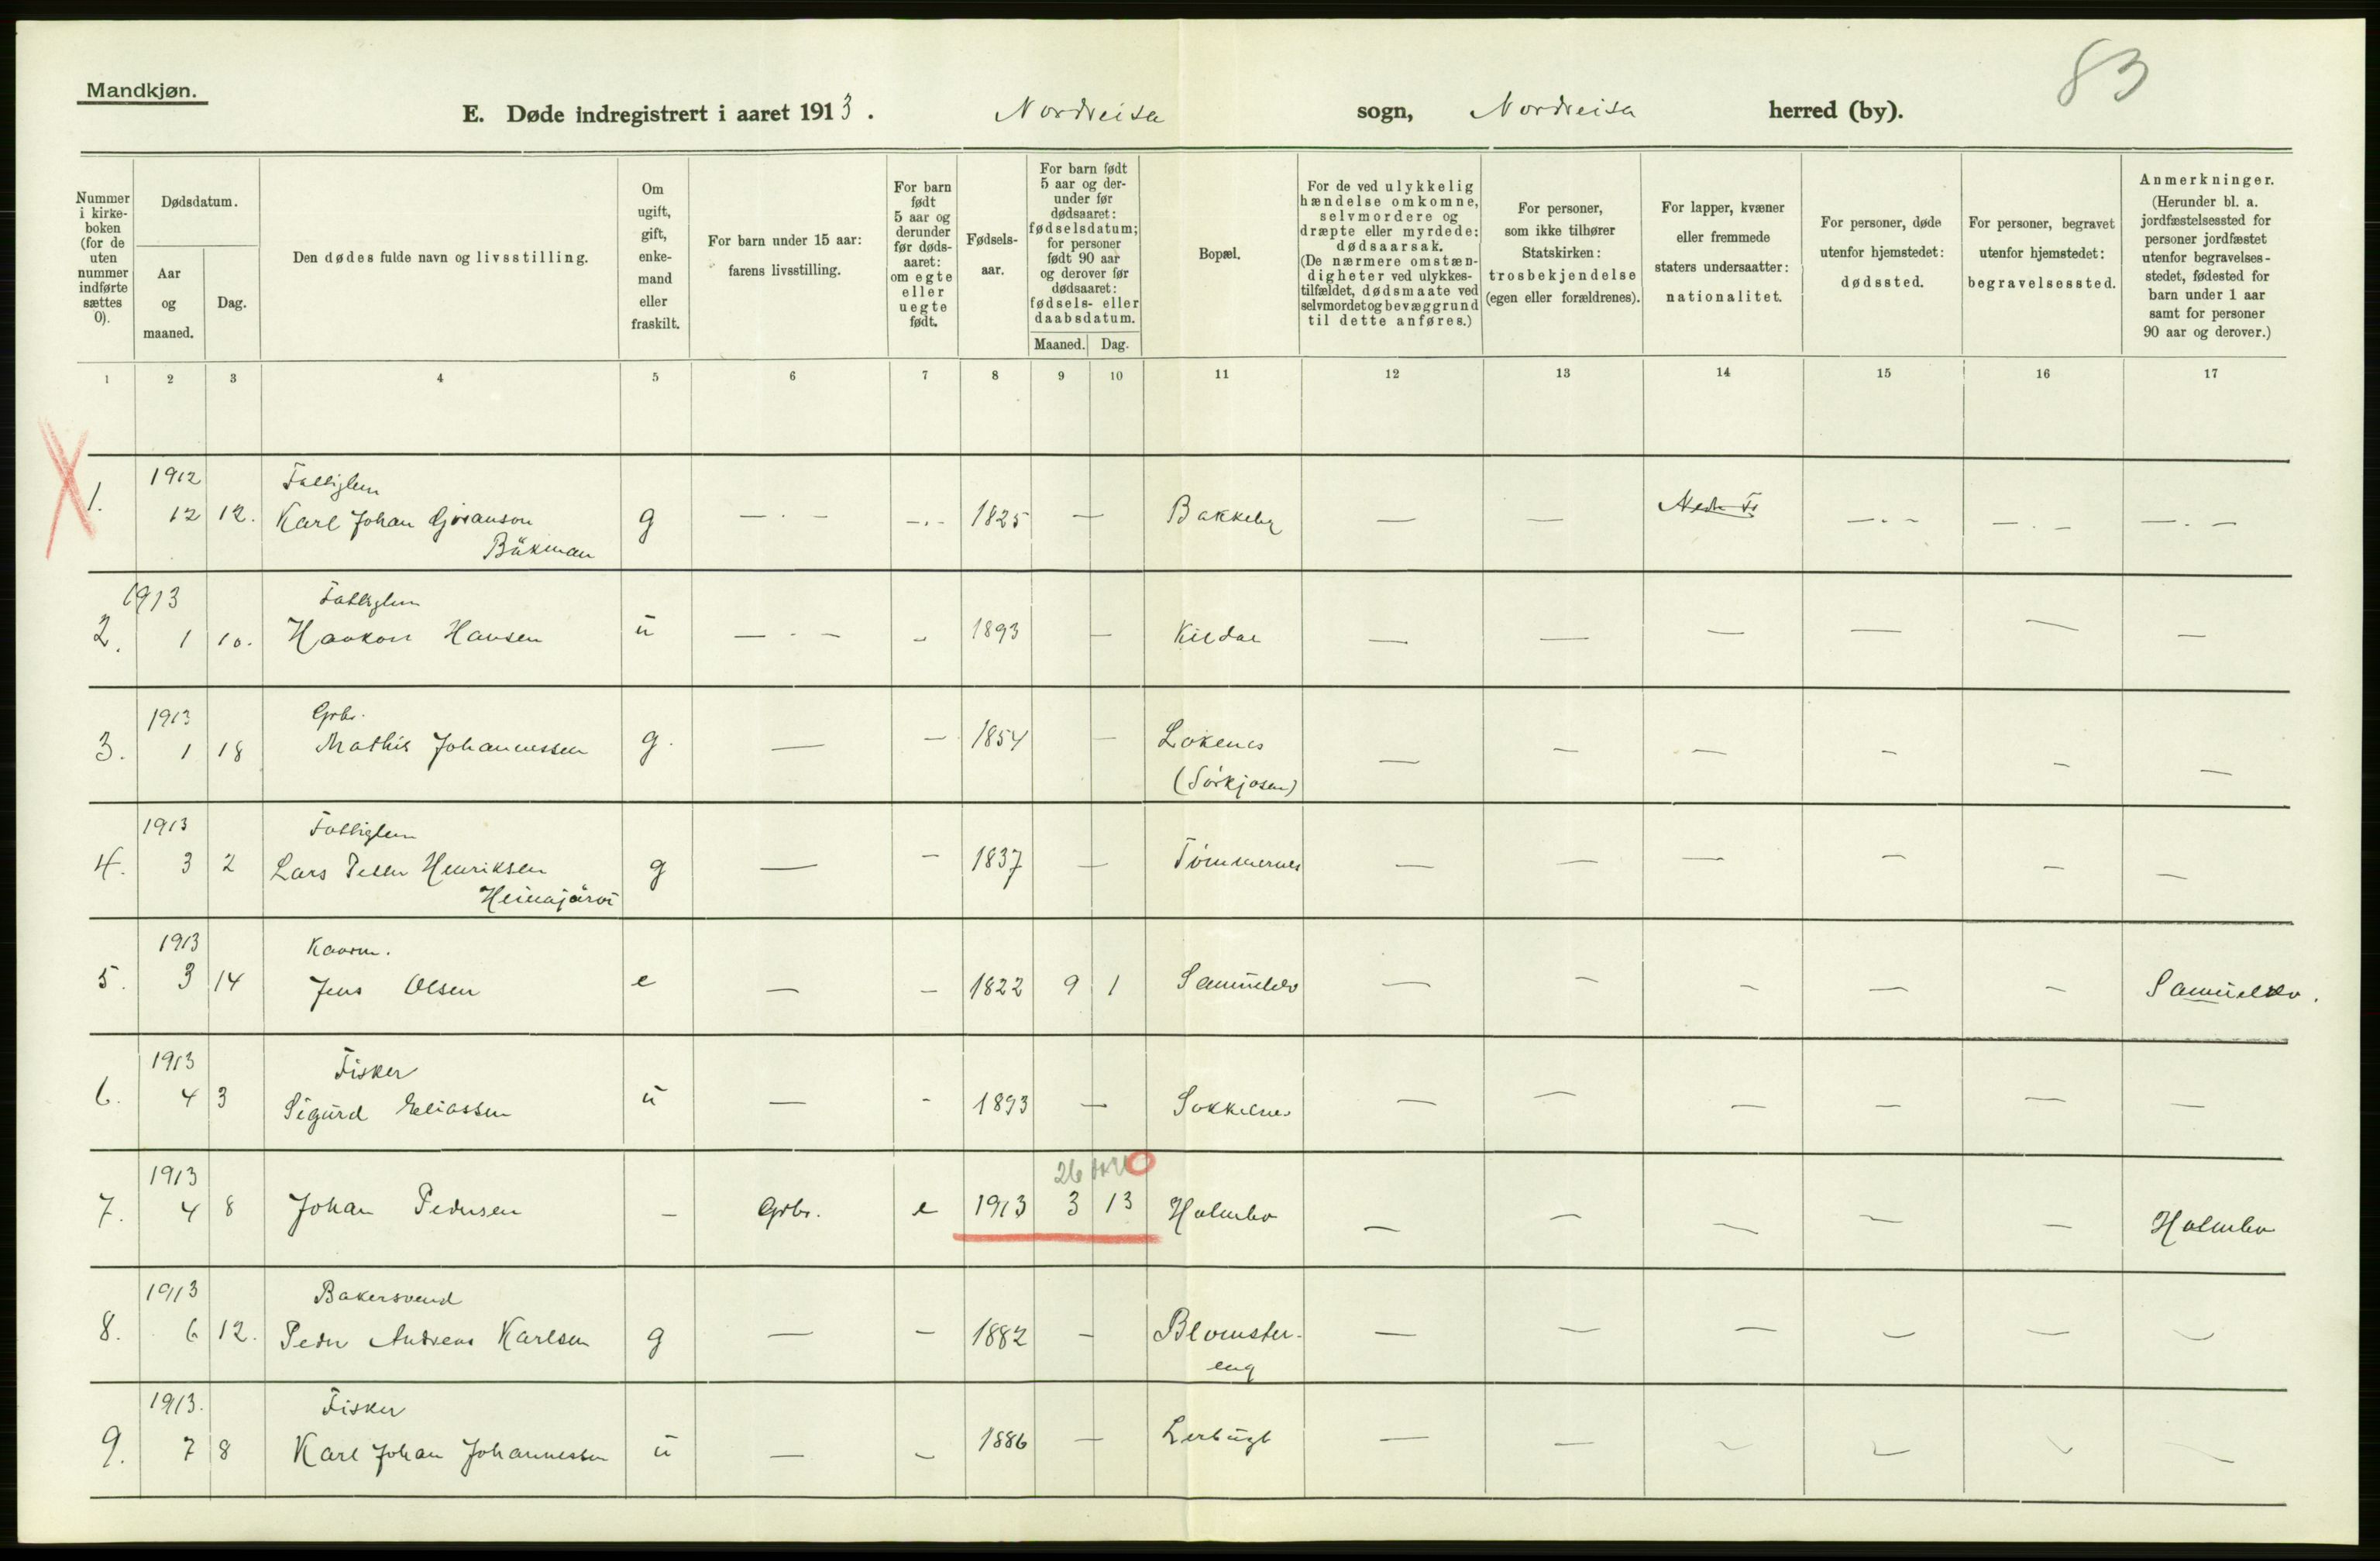 83
Mandkjøn.
E. Døde indregistrert i aaret 1913. Nordreisa sogn, Nordreisa herred (by).
Nummer i kirke-boken (for de uten nummer indførte sættes 0).
Dødsdatum.
Aar og maaned.
Dag.
Den dødes fulde navn og livsstilling.
Om ugift, gift, enke-mand eller fraskilt.
For barn under 15 aar: farens livsstilling.
For barn født 5 aar og derunder før døds-aaret: om egte eller uegte født.
Fødsels-aar.
For barn født 5 aar og der-under før dødsaaret: fødselsdatum; for personer født 90 aar og derover før dødsaaret: fødsels- eller daabsdatum.
Maaned. Dag.
Bopæl.
For de ved ulykkelig hændelse omkomne, selvmordere og dræpte eller myrdede: dødsaarsak. (De nærmere omstæn-digheter ved ulykkes-tilfældet, dødsmaate ved selvmordet og bevæggrund til dette anføres.)
For personer, som ikke tilhører Statskirken: trosbekjendelse (egen eller forældrenes).
For lapper, kvæner eller fremmede staters undersaatter: nationalitet.
For personer, døde utenfor hjemstedet: dødssted.
For personer, begravet utenfor hjemstedet: begravelsessted.
Anmerkninger. (Herunder bl. a. jordfæstelsessted for personer jordfæstet utenfor begravelses-stedet, fødested for barn under 1 aar samt for personer 90 aar og derover.)
1 2 3 4 5 6 7 8 9 10 11 12 13 14 15 16 17
1912 Fattiglem
1. 12 12. Karl Johan Gjøranson g — · — —.- 1825 — Bakkeby — — — . - — . - — . -
Bäkman
1913 Fattiglem
2. 1 10. Haakon Hansen u — . - - 1893 — Kildal — — — — — —
1913 Grbr.
3. 1 18 Mathis Johannessen g. — - 1854 — Lökenes — — — — — —
(Sörkjosen)
1913 Fattiglem
4. 3 2 Lars Peder Henriksen g — - 1837 — Tömmernes — — — — — —
Heinajärvi
1913 Kaarm.
5. 3 14 Jens Olsen e — - 1822 9 1 Samuelelv — — — — — Samuelelv.
1913 Fisker
6. 4 3 Sigurd Eliassen u — - 1893 — Sokkelnes — — — — — —
1913 26 0
7. 4 8 Johan Pedersen — Grbr. e 1913 3 13 Holmbo — — — — — Holmbo
1913 Bakersvend
8. 6 12. Peder Andreas Karlsen g — - 1882 — Blomster- — — — — — —
eng
1913. Fisker
9. 7 8 Karl Johan Johannessen u — - 1886 — Lerbugt — — — — — —